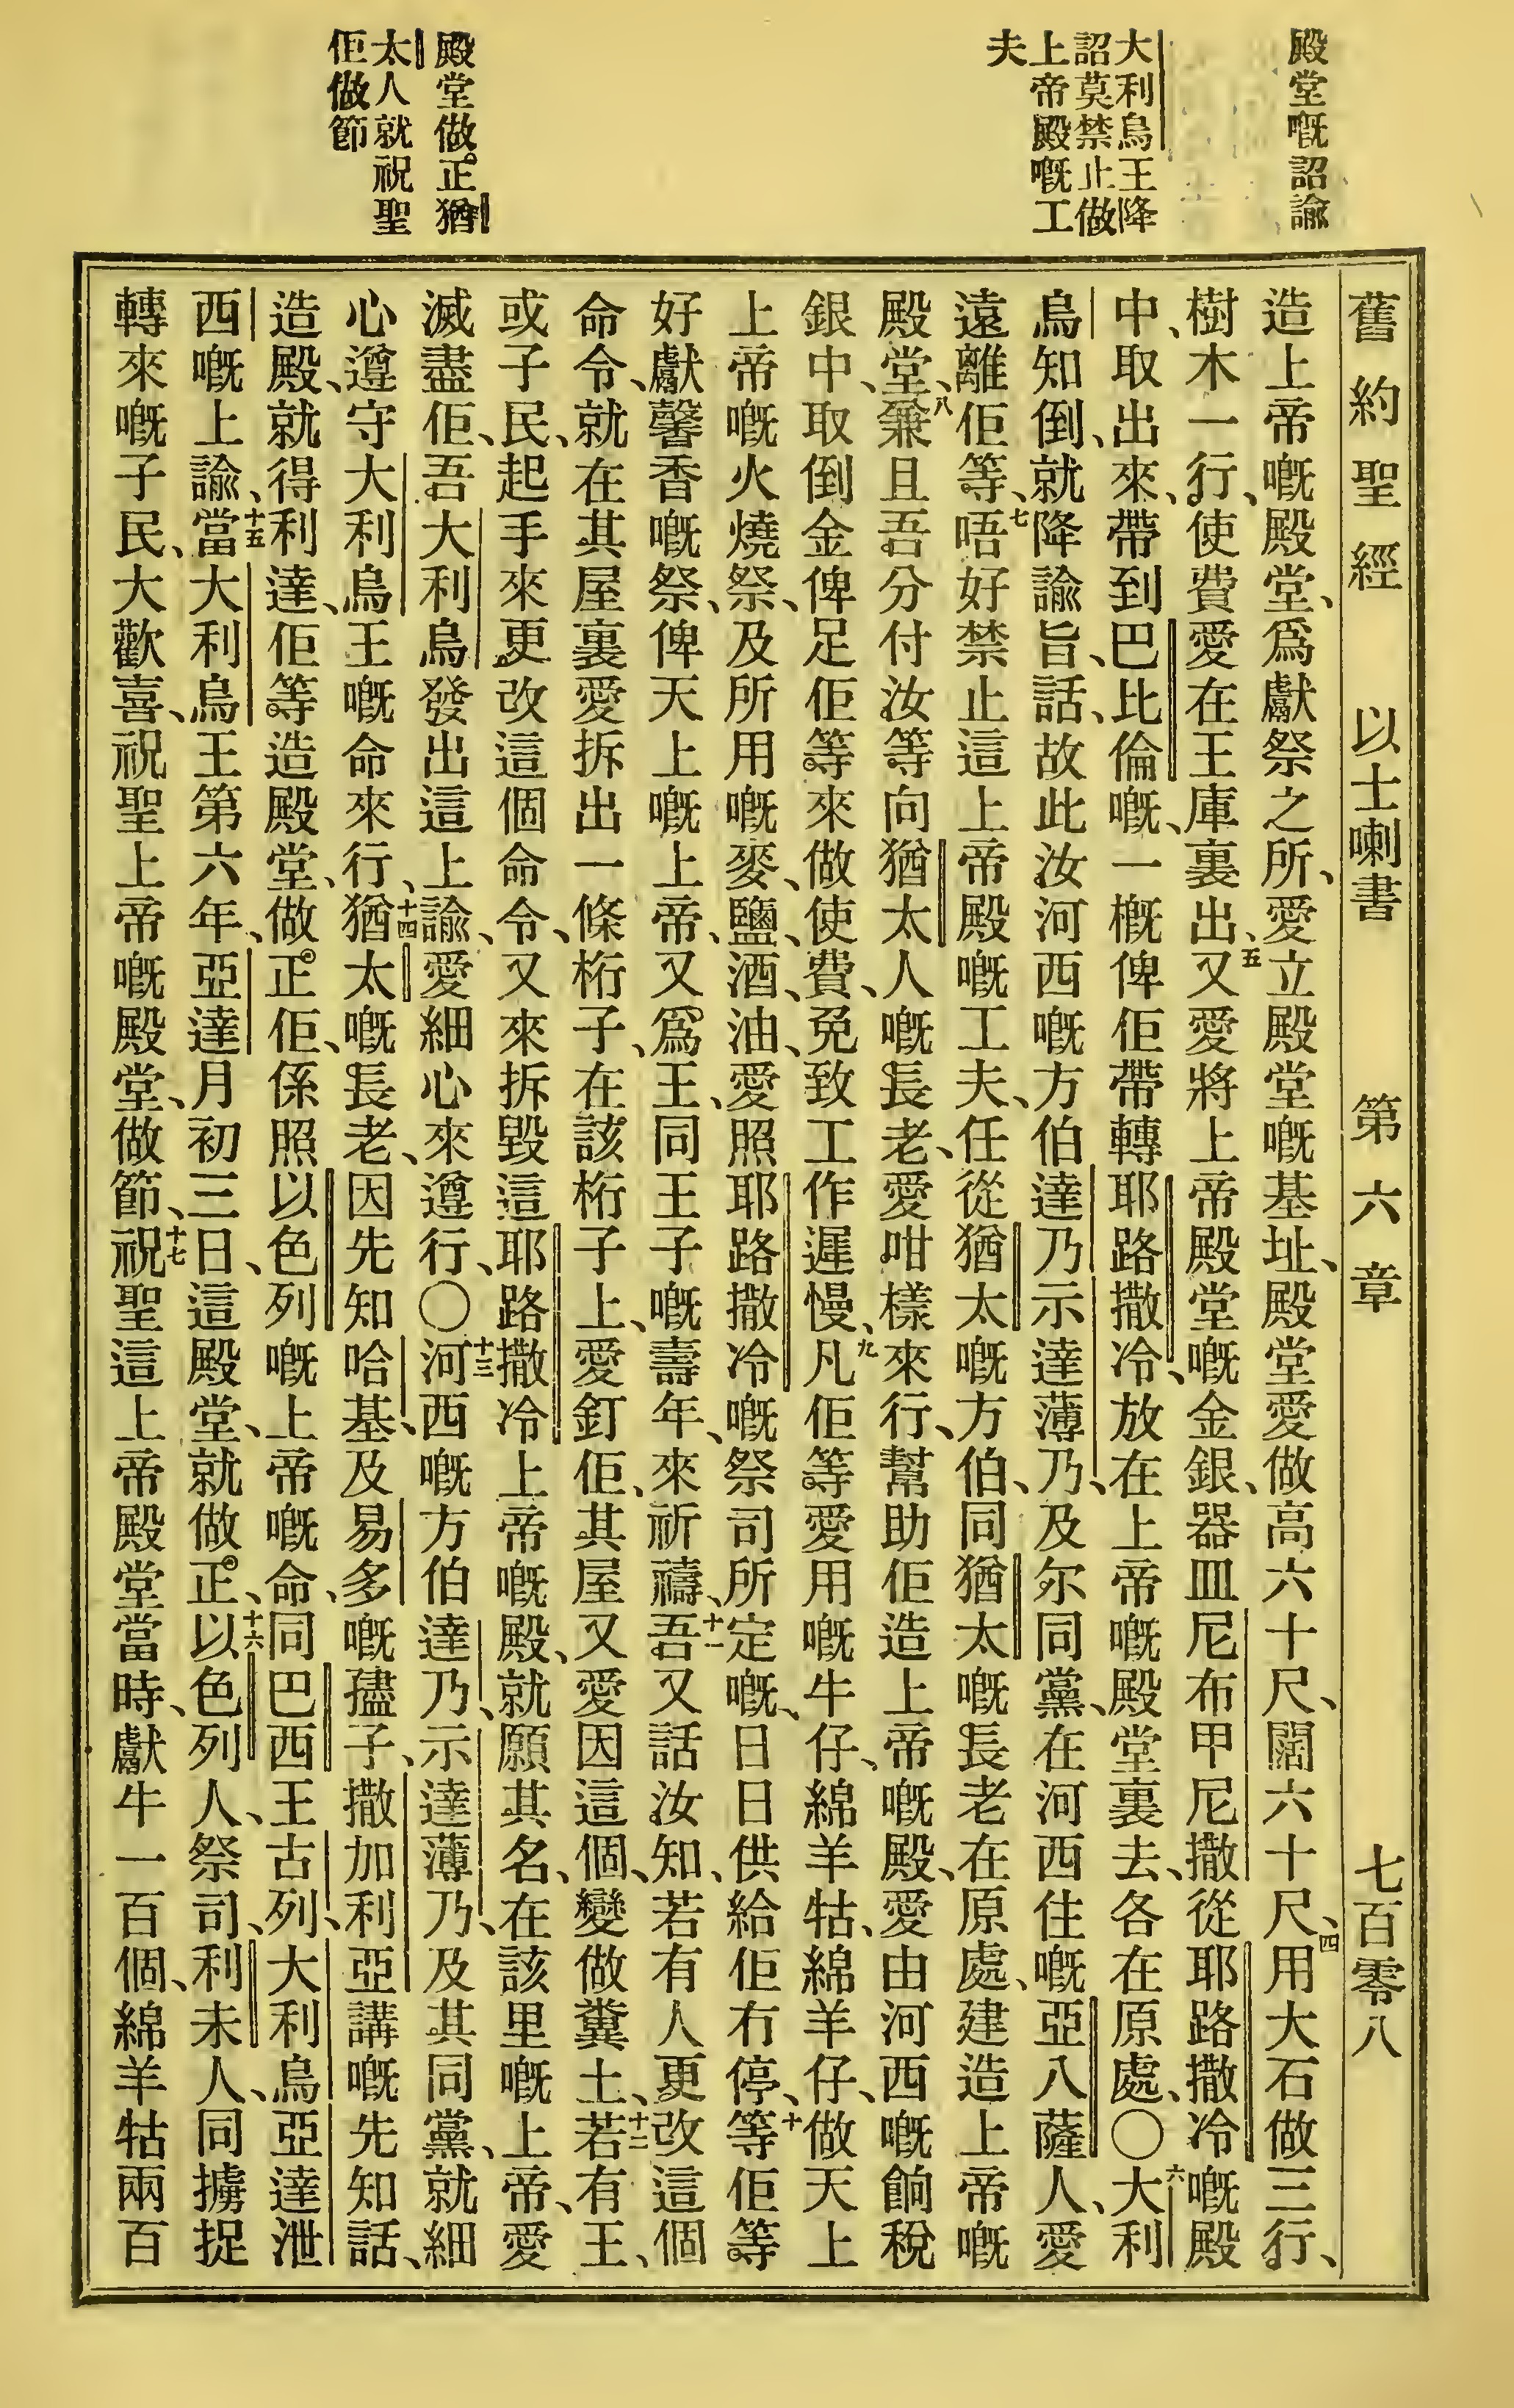 殿堂嘅詔諭
大利烏王降
詔莫禁止做
上帝殿嘅工
夫
殿堂做正猶
太人就祝聖
佢做節
舊約聖經 以士喇書 第六章 七百零八
造上帝嘅殿堂、爲獻祭之所、愛立殿堂嘅基址、殿堂愛做高六十尺、闊六十尺、四用大石做三行、
樹木一行、使費愛在王庫裏出、五又愛將上帝殿堂嘅金銀、器皿尼布甲尼撒從耶路撒冷嘅殿
中、取出來、帶到巴比倫嘅、一概俾佢帶轉耶路撒冷、放在上帝嘅殿堂裏去、各在原處、〇六大利
烏知倒、就降諭旨、話、故此汝河西嘅方伯達乃示達薄乃、及尔同黨、在河西住嘅亞八薩人、愛
遠離佢等、七唔好禁止這上帝殿嘅工夫、任從猶太嘅方伯、同猶太嘅長老在原處、建造上帝嘅
殿堂、八兼且吾分付汝等向猶太人嘅長老、愛咁樣來行、幫助佢造上帝嘅殿、愛由河西嘅餉稅
銀中、取倒金俾足佢等來做使費、免致工作遲慢、九凡佢等愛用嘅牛仔、綿羊牯、綿羊仔、做天上
上帝嘅火燒祭、及所用嘅麥、鹽、酒、油、愛照耶路撒冷嘅祭司所定嘅、日日供給佢冇停、十等佢等
好獻馨香嘅祭、俾天上嘅上帝、又爲王、同王子嘅壽年、來祈禱、十一吾又話汝知、若有人更改這個
命令、就在其屋裏愛拆出一條桁子、在該桁子上、愛釘佢、其屋又愛因這個、變做糞土、十二若有王、
或子民、起手來更改這個命令、又來拆毀這耶路撒冷上帝嘅殿、就願其名、在該里嘅上帝、愛
滅盡佢、吾大利烏發出這上諭、愛細心來遵行、〇十三河西嘅方伯達乃、示達薄乃、及其同黨、就細
心遵守大利烏王嘅命來行、十四猶太嘅長老、因先知哈基、及易多嘅孻子、撒加利亞講嘅先知話、
造殿、就得利達、佢等造殿堂、做正佢、係照以色列嘅上帝嘅命、同巴西王古列、大利烏亞達泄
西嘅上諭、十五當大利烏王第六年、亞達月初三日、這殿堂、就做正、十六以色列人、祭司、利未人、同擄捉
轉來嘅子民、大歡喜、祝聖上帝嘅殿堂、做節、十七祝聖這上帝殿堂當時、獻牛一百個、綿羊牯兩百